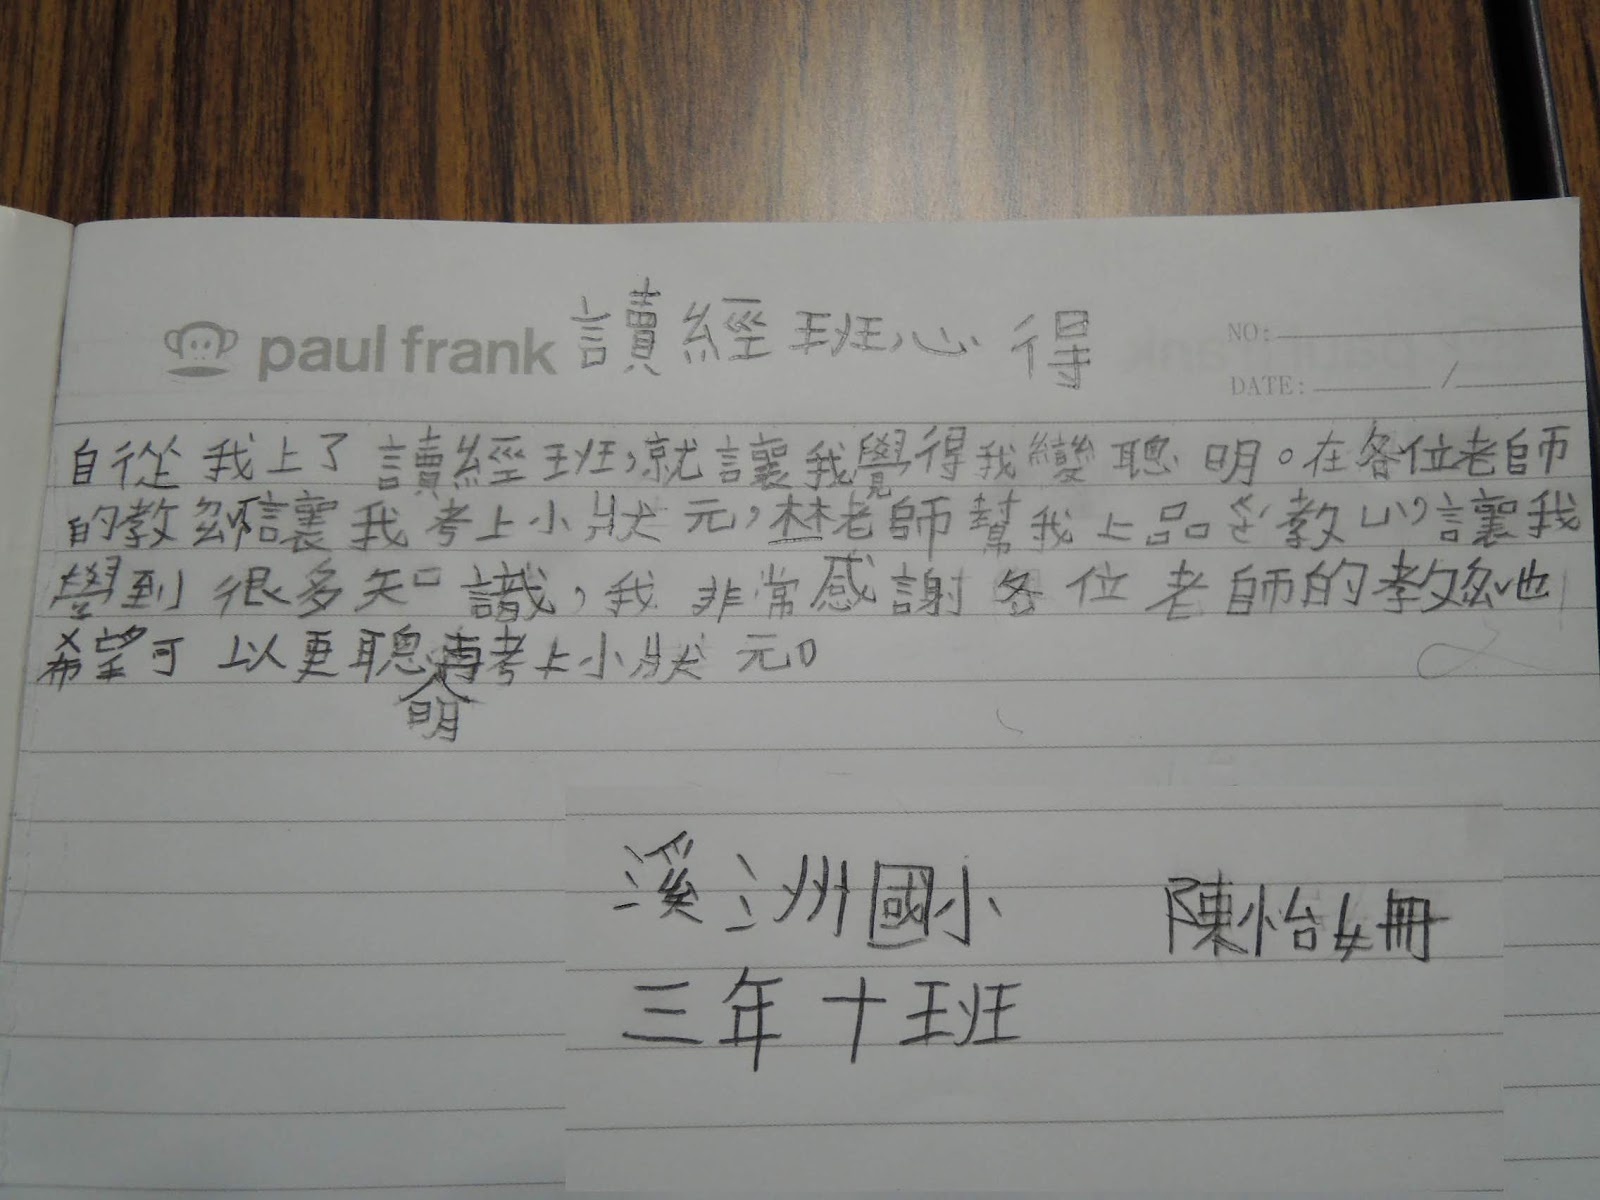 paul frank 讀經班心得
NO:
DATE: /
自從我上了讀經班,就讓我覺得我變聰明。在各位老師
的教導讓我考上小狀元,林老師幫我上品 教心,讓我
學到很多知識,我非常感謝各位老師的教 也
希望可以更聰明再考上小狀元。
溪洲國小 陳怡姍
三年十班